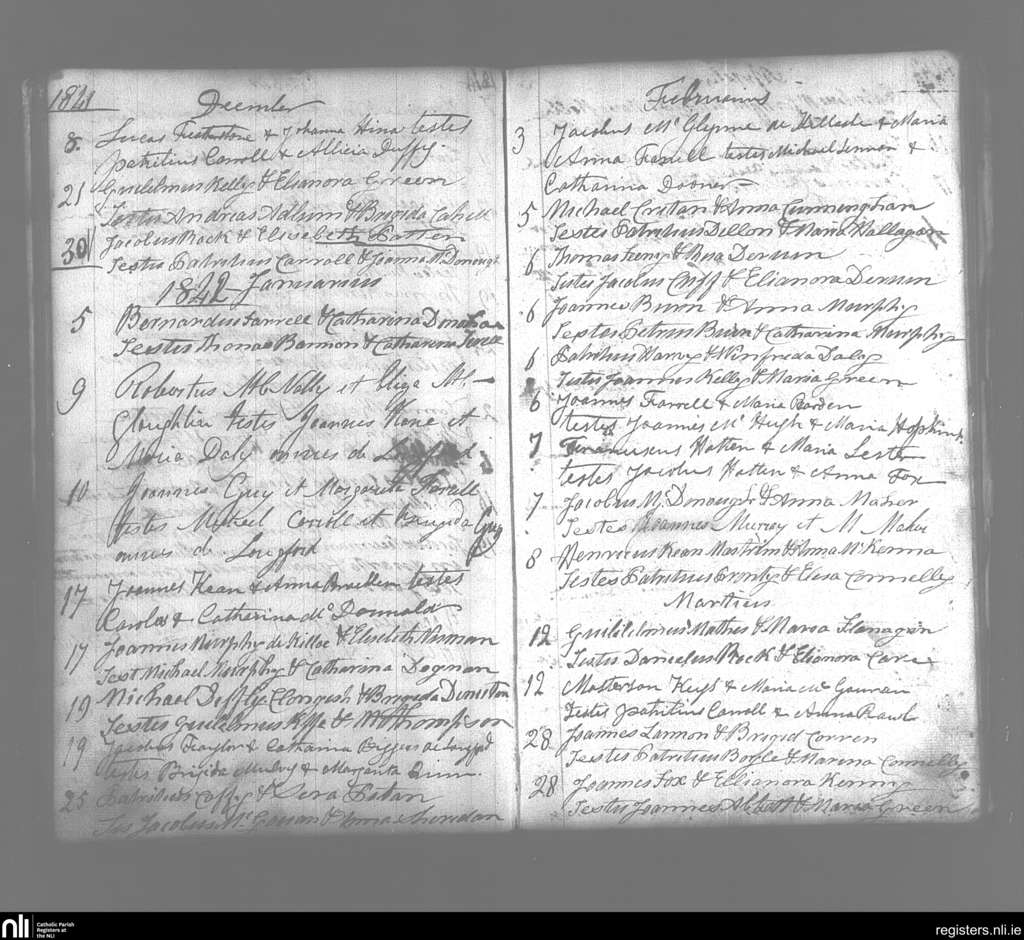 1841
December
8 Lucas Fetherstone & Johanna Hina testes
Patritius Carroll & Allicia Duffy
21 Guilelmus Kelly & Eleanora Green
Testes Andreas Adlum & Brigida Cahill
30 Jacobus Rock & Elisebeth Patten
Testes Patritius Carroll & Joanna McDonough
1842 Januarius
5 Bernardus Farrell & Catharina Donahoe
Testes Thomas Bannon & Catharina
9 Robertus McNally et Eliza Mc
Gloughlin Testes Joannes Kane et
Maria Daly omnes de Longford
10 Joannes Grey et Margarita Farrell
testes Michael Carroll et Brigida Grey
omnes de Longford
17 Joannes Kean & Anna testes
Carolus & Catherina McDonnald
17 Joannes Murphy de Killoe & Elisebeth Numan
Test Michael Murphy & Catharina Dognan
19 Michael Deffly Clongish & Brigida Deniston
Testes Guilelmus & M Thompson
19 Jacobus Traylor & Catharina Biggus de Longford
testes Brigida Mulvy & Margarita Quinn.
25 Patritius Coffy & Sera Patan
Tes Jacobus McGauran & Anna Sheridan
Februarius
3 Jacobus McGlynne de Killashe & Maria
Anna Farrell testes Michael Lennon &
Catharina Dooner
5 Michael Cretan & Anna Cunninghan
Testes Patritius Dillon & Maria Hallagan
6 Thomas Feeny & Rosa Dernin
Testes Jacobus Cuff & Elianora Dernin
6 Joannes Burn & Anna Murphy
Testes Petrus Burn & Catharina Murphy
6 Patritius Harvy & Winfreda Daly
Testes Joannes Kelly & Maria Green
6 Joannes Farrell & Maria Barden
testes Joannes McHugh & Maria Hopkins
7 Franciscus Hatten & Maria Lester
testes Jacobus Hatten & Anna Fox
7 Jacobus McDonough & Anna Maher
Testes Joannes Murray et M Maher
8 Henricus Kean Mastrim & Anna McKenna
Testes Patritius Pronty & Elisa Connelly
Martius
12 Guililelmus Mathes & Maria Flanagan
Testes Danielus Rock & Elionora Care
12 Masterson Keys & Maria Mc Gauran
Testes Patritius Carroll & Anna Rawl
28 Joannes Lannon & Brigid Corren
Testes Patritius Boyle & Marina Connelly
28 Joannes Fox & Ellianora Kenny
Testes Joannes Abbott & Maria Green
nli
Catholic Parish
Registers at
the NLI
registers.nli.ie